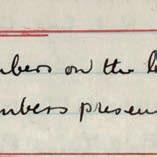 mbers on the
mbers presen